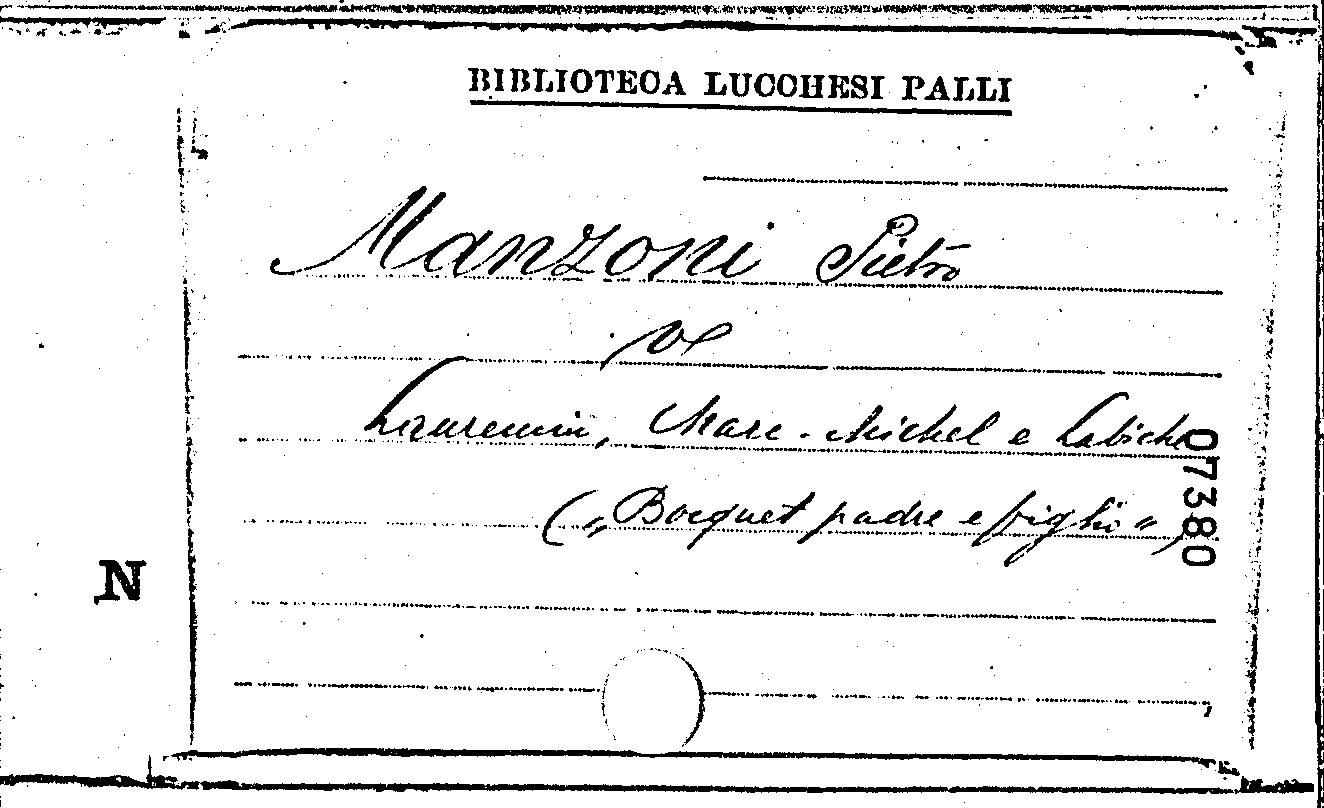 BIBLIOTECA LUCCHESI PALLI
Manzoni Pietro
Ve
Laurencin, Marc-Michel e Labiche
(„Bocquet padre e figlio")
07380
N